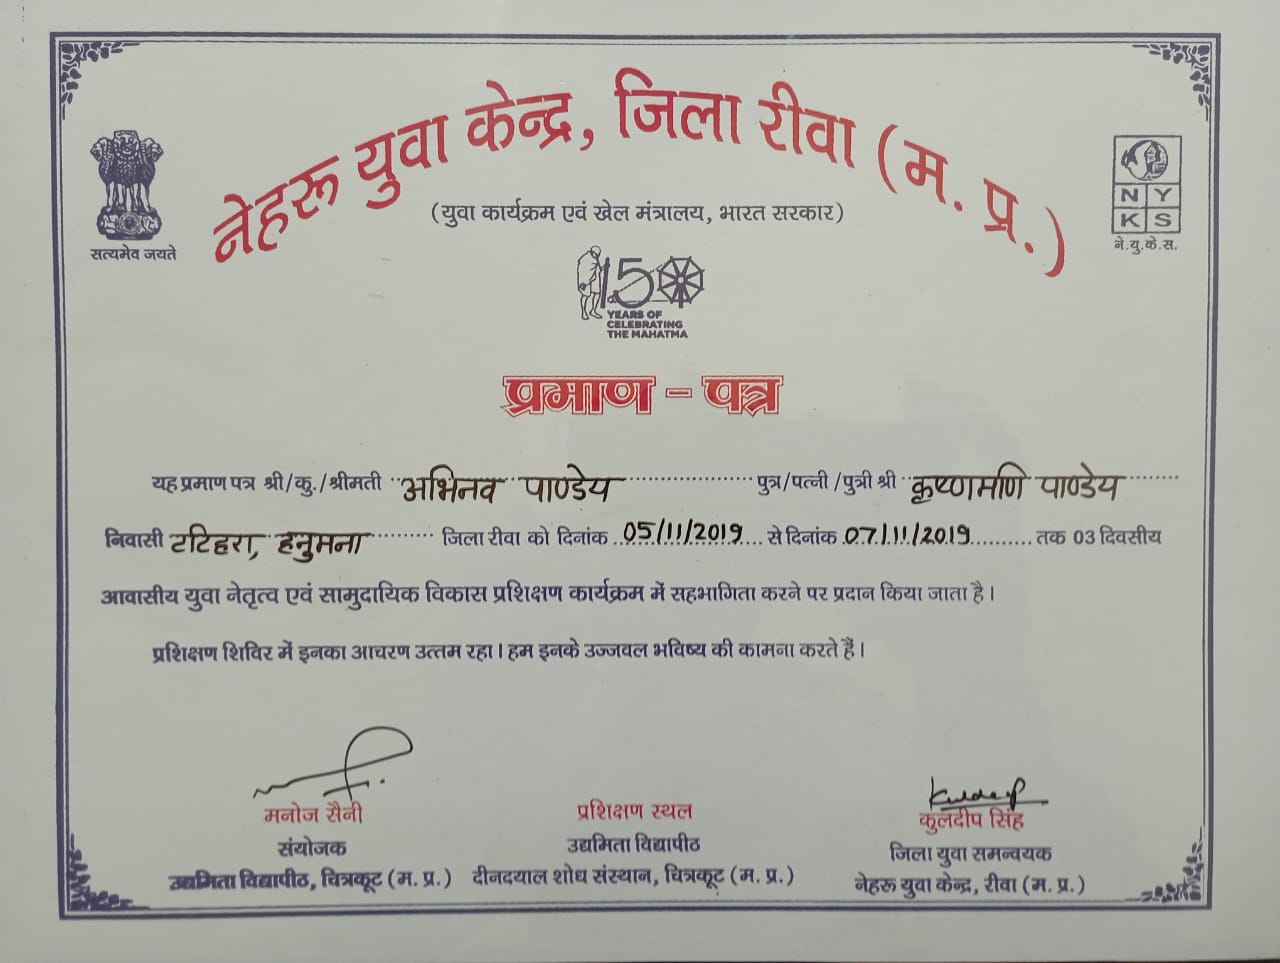 नेहरू युवा केन्द्र, जिला रीवा (म. प्र.)
(युवा कार्यक्रम एवं खेल मंत्रालय, भारत सरकार)
सत्यमेव जयते
N Y
K S
ने.यु.के.स.
150
YEARS OF
CELEBRATING
THE MAHATMA
प्रमाण - पत्र
यह प्रमाण पत्र श्री/कु./श्रीमती अभिनव पाण्डेय पुत्र/पत्नी /पुत्री श्री कृष्णमणि पाण्डेय
निवासी टटिहरा, हनुमना जिला रीवा को दिनांक 05/11/2019 से दिनांक 07/11/2019 तक 03 दिवसीय
आवासीय युवा नेतृत्व एवं सामुदायिक विकास प्रशिक्षण कार्यक्रम में सहभागिता करने पर प्रदान किया जाता है।
प्रशिक्षण शिविर में इनका आचरण उत्तम रहा। हम इनके उज्जवल भविष्य की कामना करते हैं।
Kuldeep
मनोज सैनी
संयोजक
उद्यमिता विद्यापीठ, चित्रकूट (म. प्र.)
प्रशिक्षण स्थल
उद्यमिता विद्यापीठ
दीनदयाल शोध संस्थान, चित्रकूट (म. प्र.)
कुलदीप सिंह
जिला युवा समन्वयक
नेहरू युवा केन्द्र, रीवा (म. प्र.)